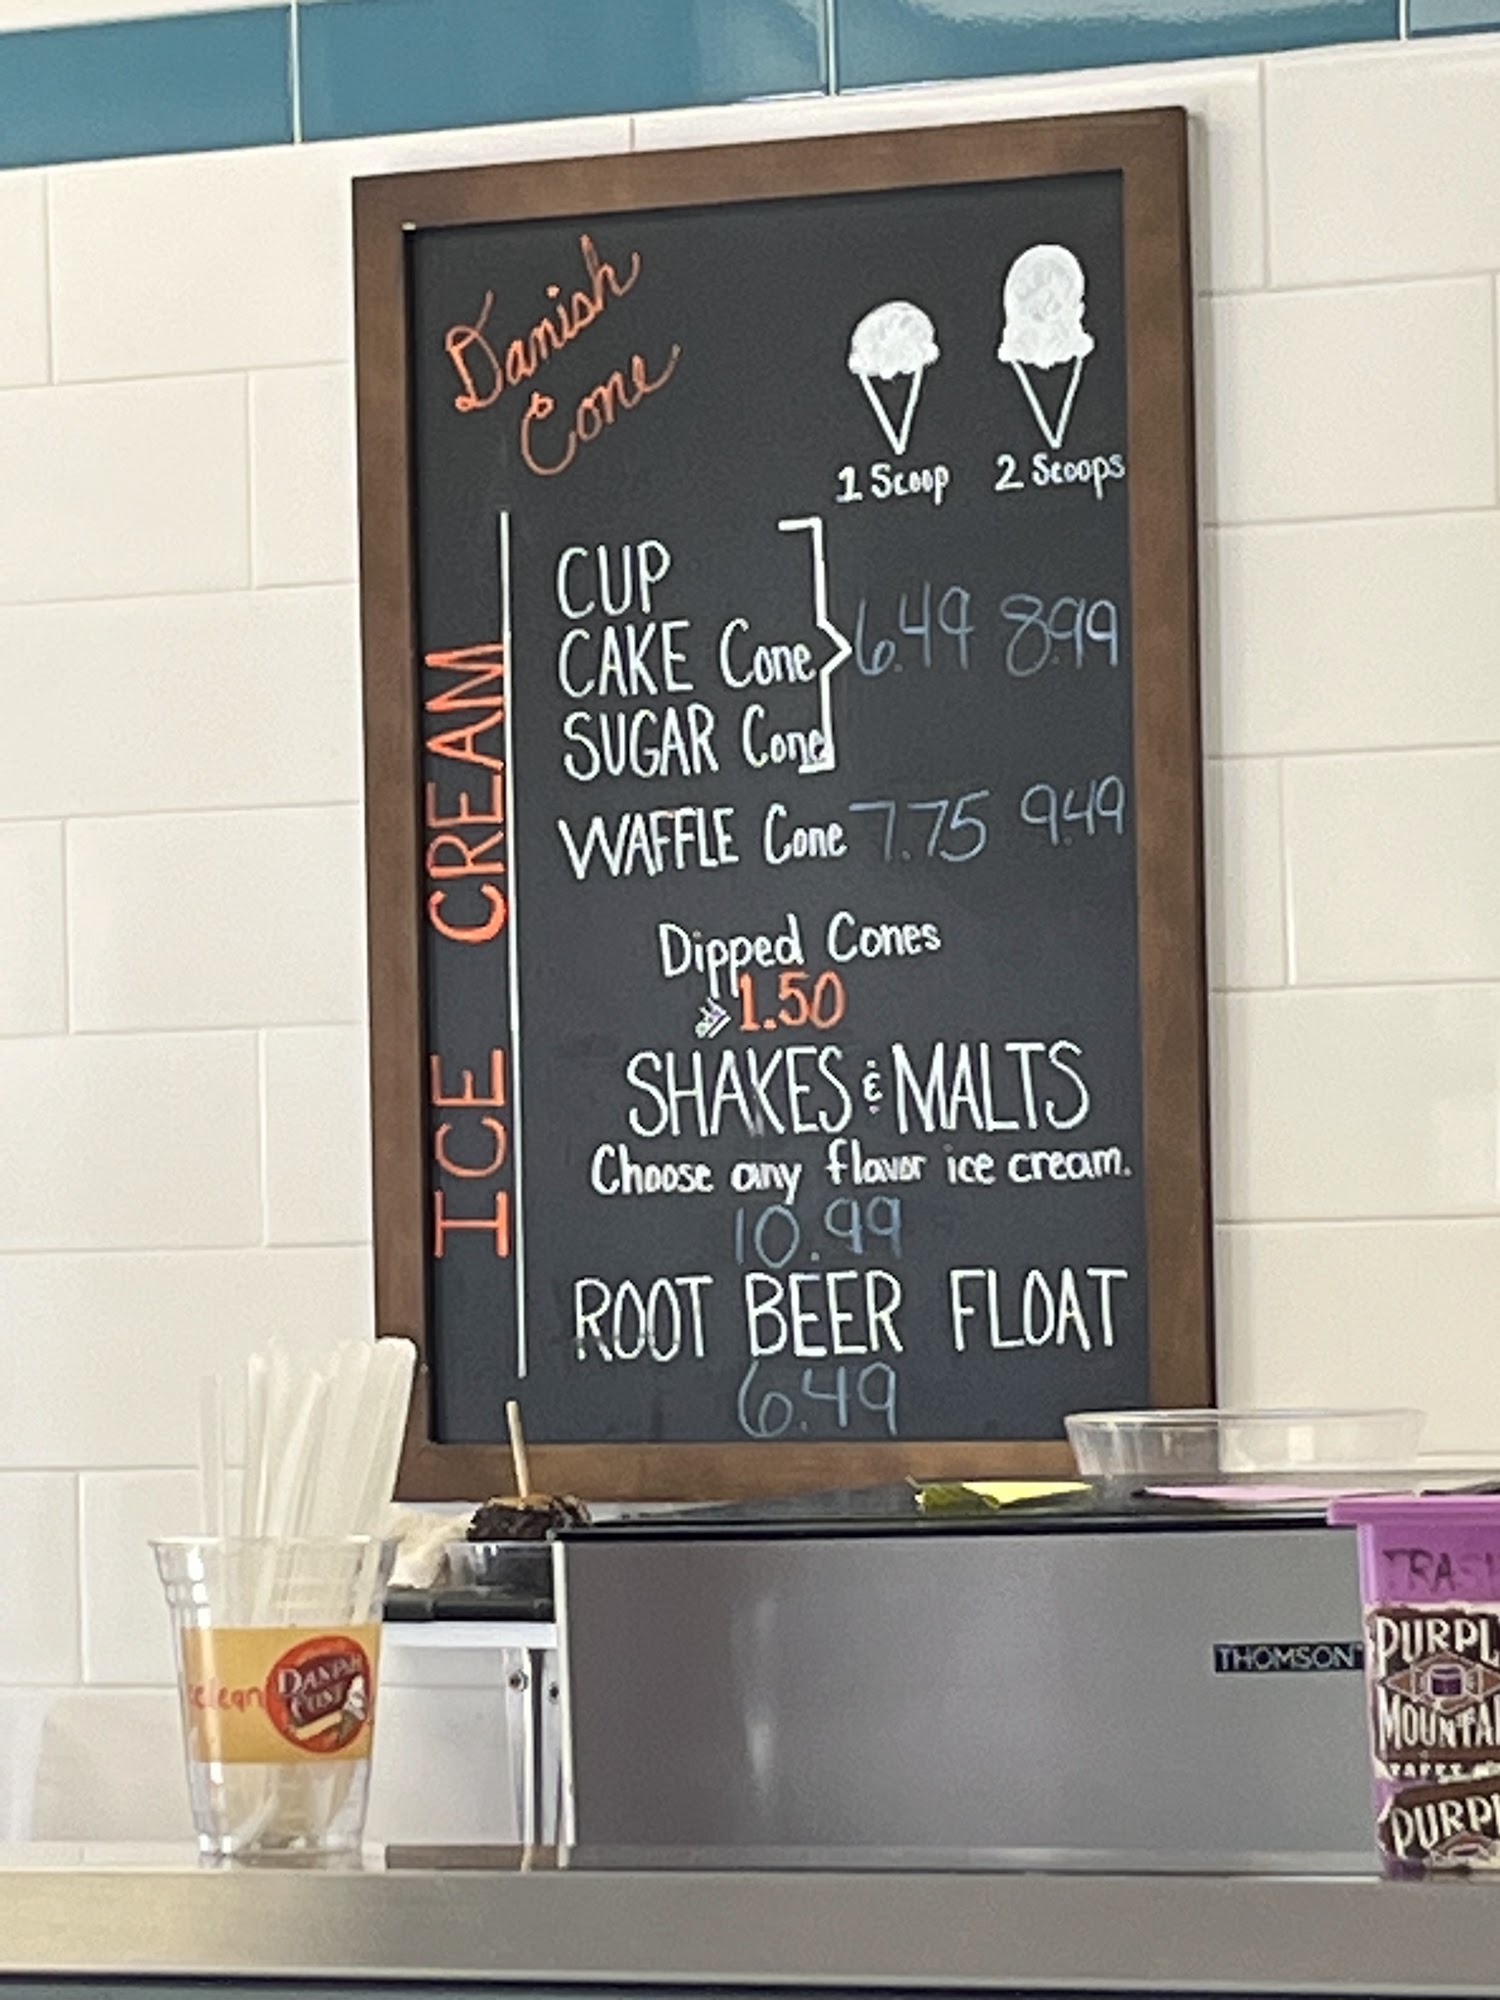 Danish
Cone
1 Scoop 2 Scoops
ICE CREAM
CUP
CAKE Cone 6.49 8.99
SUGAR Cone
WAFFLE Cone 7.75 9.49
Dipped Cones
1.50
SHAKES & MALTS
Choose any flavor ice cream.
10.99
ROOT BEER FLOAT
6.49
THOMSON
TRASH
PURPL
MOUNTAI
PURPL
clean
DANISH
CONE